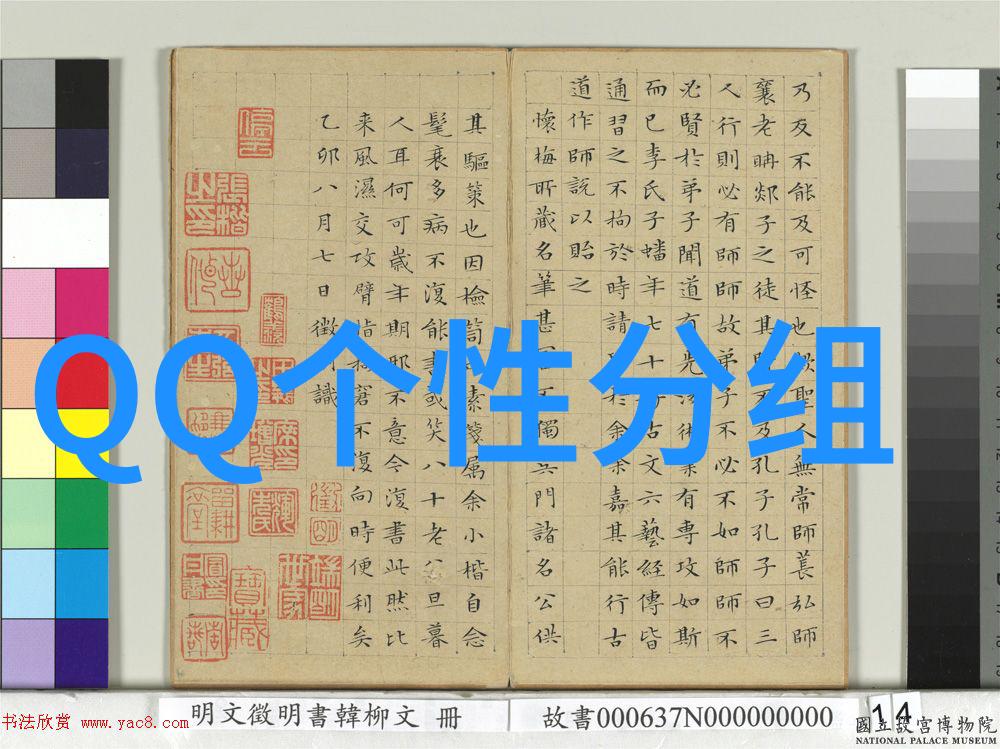 乃反不能及可怪也歟聖人無常師萇弘師
襄老聃郯子之徒其不及孔子孔子曰三
人行則必有師師故弟子不必不如師師不
必賢於弟子聞道有先術業有專攻如斯
而已李氏子蟠年七十古文六藝經傳皆
通習之不拘於時請於余余嘉其能行古
道作師說以貽之
懷梅所藏名筆甚不獨門諸名公供
其驅策也因檢笥素箋屬余小楷自念
髦衰多病不復能書或笑八十老公旦暮
人耳何可歲年期耶不意今復書此然比
来風濕交攻臂指窘不復向時便利矣
乙卯八月七日徵識
QQ个性分组
明文徵明書韓柳文 冊
故書000637N000000000
14
书法欣赏 www.yac8.com
國立故宮博物院
NATIONAL PALACE MUSEUM